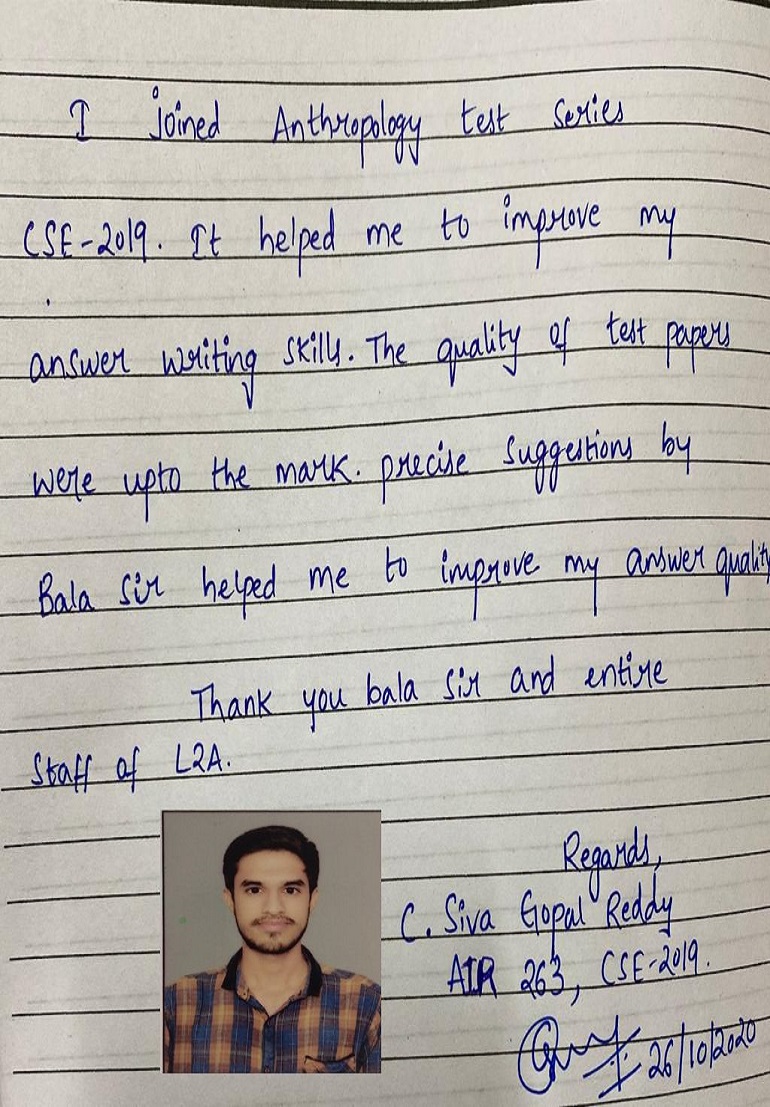 I joined Anthropology test series
CSE-2019. It helped me to improve my
answer writing skills. The quality of test papers
were upto the mark. precise suggestions by
Bala sir helped me to improve my answer quality
Thank you bala sir and entire
staff of L2A.
Regards,
C. Siva Gopal Reddy
AIR 263, CSE-2019.
26/10/2020